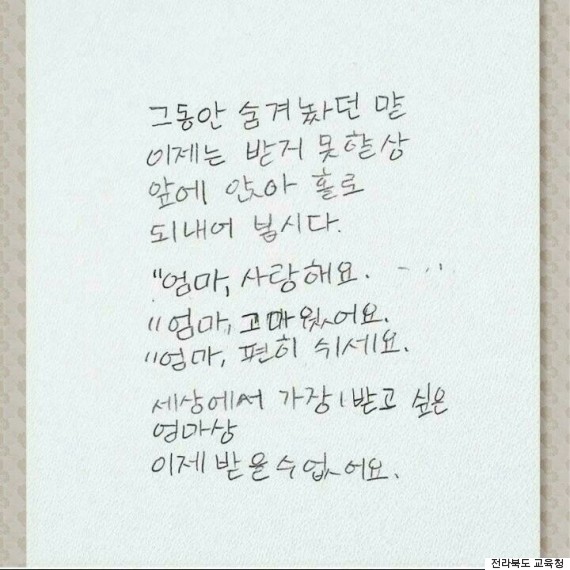 그동안 숨겨놨던 말
이제는 받거 못할상
앞에 앉아 홀로
되내어 봅시다.
"엄마, 사랑해요. - ...
"엄마, 고마웠어요.
"엄마, 편히 쉬세요.
세상에서 가장 받고 싶은
엄마상
이제 받을수 없어요.
전라북도 교육청